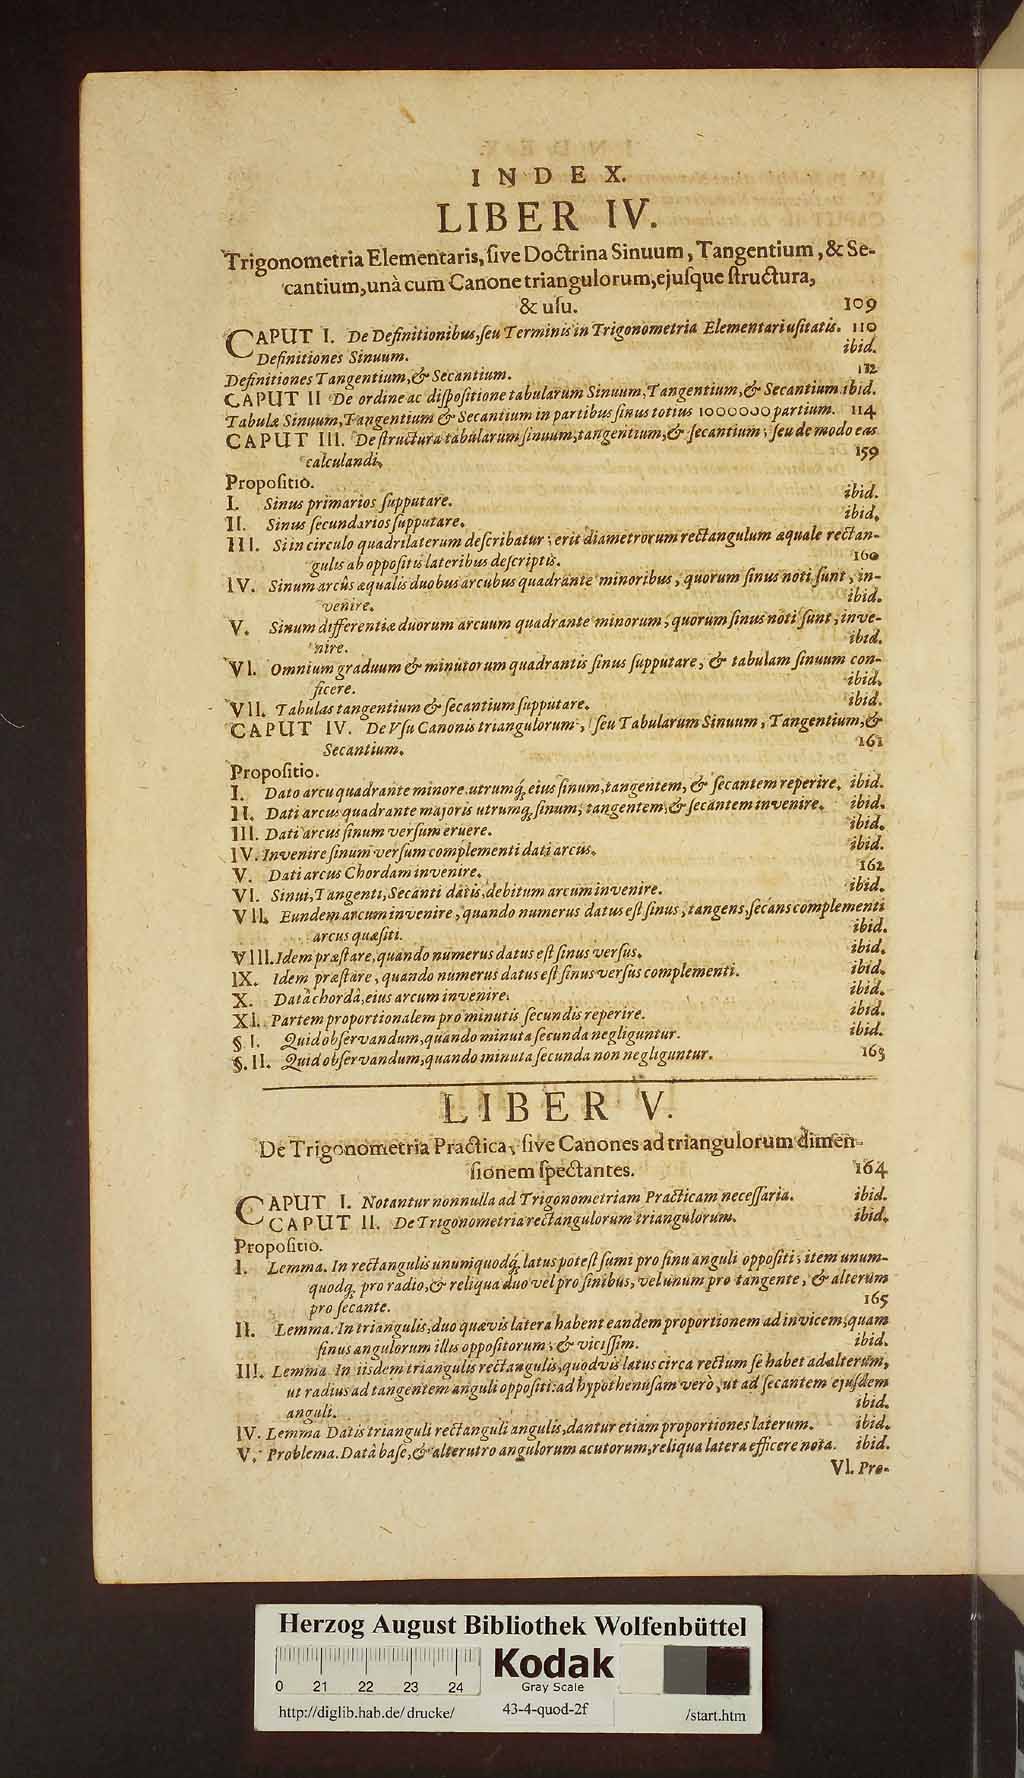 INDEX.
LIBER IV.
Trigonometria Elementaris, ſive Doctrina Sinuum, Tangentium, & Se-
cantium, unà cum Canone triangulorum, ejuſque ſtructura,
& uſu. 109
CAPUT I. De Definitionibus, ſeu Terminis in Trigonometria Elementari uſitatis. 110
Definitiones Sinuum. ibid.
Definitiones Tangentium, & Secantium. 112
CAPUT II De ordine ac diſpoſitione tabularum Sinuum, Tangentium, & Secantium ibid.
Tabulæ Sinuum, Tangentium & Secantium in partibus ſinus totius 1000000 partium. 114
CAPUT III. De ſtructura tabularum ſinuum, tangentium, & ſecantium; ſeu de modo eas
calculandi, 159
Propoſitio.
I. Sinus primarios ſupputare. ibid.
II. Sinus ſecundarios ſupputare. ibid.
III. Si in circulo quadrilaterum deſcribatur; erit diametrorum rectangulum æquale rectan-
gulis ab oppoſitis lateribus deſcriptis. 160
IV. Sinum arcûs æqualis duobus arcubus quadrante minoribus, quorum ſinus noti ſunt, in-
venire. ibid.
V. Sinum differentiæ duorum arcuum quadrante minorum, quorum ſinus noti ſunt, inve-
nire. ibid.
VI. Omnium graduum & minutorum quadrantis ſinus ſupputare, & tabulam ſinuum con-
ficere. ibid.
VII. Tabulas tangentium & ſecantium ſupputare. ibid.
CAPUT IV. De Vſu Canonis triangulorum, ſeu Tabularum Sinuum, Tangentium, &
Secantium. 161
Propoſitio.
I. Dato arcu quadrante minore utrumq́, eius ſinum, tangentem, & ſecantem reperire. ibid.
II. Dati arcus quadrante majoris utrumq́, ſinum, tangentem, & ſecantem invenire. ibid.
III. Dati arcus ſinum verſum eruere. ibid.
IV. Invenire ſinum verſum complementi dati arcûs. ibid.
V. Dati arcus Chordam invenire. 162
VI. Sinui, Tangenti, Secanti datis, debitum arcum invenire. ibid.
VII. Eundem arcum invenire, quando numerus datus eſt ſinus, tangens, ſecans complementi
arcus quæſiti. ibid.
VIII. Idem præſtare, quando numerus datus eſt ſinus verſus. ibid.
IX. Idem præſtare, quando numerus datus eſt ſinus verſus complementi. ibid.
X. Datâ chordâ, eius arcum invenire. ibid.
XI. Partem proportionalem pro minutis ſecundis reperire. ibid.
§. I. Quid obſervandum, quando minuta ſecunda negliguntur. ibid.
§. II. Quid obſervandum, quando minuta ſecunda non negliguntur. 163
LIBER V.
De Trigonometria Practica, ſive Canones ad triangulorum dimen-
ſionem ſpectantes. 164
CAPUT I. Notantur nonnulla ad Trigonometriam Practicam neceſſaria. ibid.
CAPUT II. De Trigonometria rectangulorum triangulorum. ibid.
Propoſitio.
I. Lemma. In rectangulis unumquodq́, latus poteſt ſumi pro ſinu anguli oppoſiti; item unum-
quodq́, pro radio, & reliqua duo vel pro ſinibus, vel unum pro tangente, & alterum
pro ſecante. 165
II. Lemma. In triangulis, duo quævis latera habent eandem proportionem ad invicem, quam
ſinus angulorum illis oppoſitorum; & viciſſim. ibid.
III. Lemma In iisdem triangulis rectangulis, quodvis latus circa rectum ſe habet ad alterum,
ut radius ad tangentem anguli oppoſiti: ad hypothenuſam verò, ut ad ſecantem ejuſdem
anguli. ibid.
IV. Lemma Datis trianguli rectanguli angulis, dantur etiam proportiones laterum. ibid.
V. Problema. Datâ baſe, & alterutro angulorum acutorum, reliqua latera efficere nota. ibid.
VI. Pro-
Herzog August Bibliothek Wolfenbüttel
0 21 22 23 24
Kodak
Gray Scale
http://diglib.hab.de/drucke/ 43-4-quod-2f /start.htm